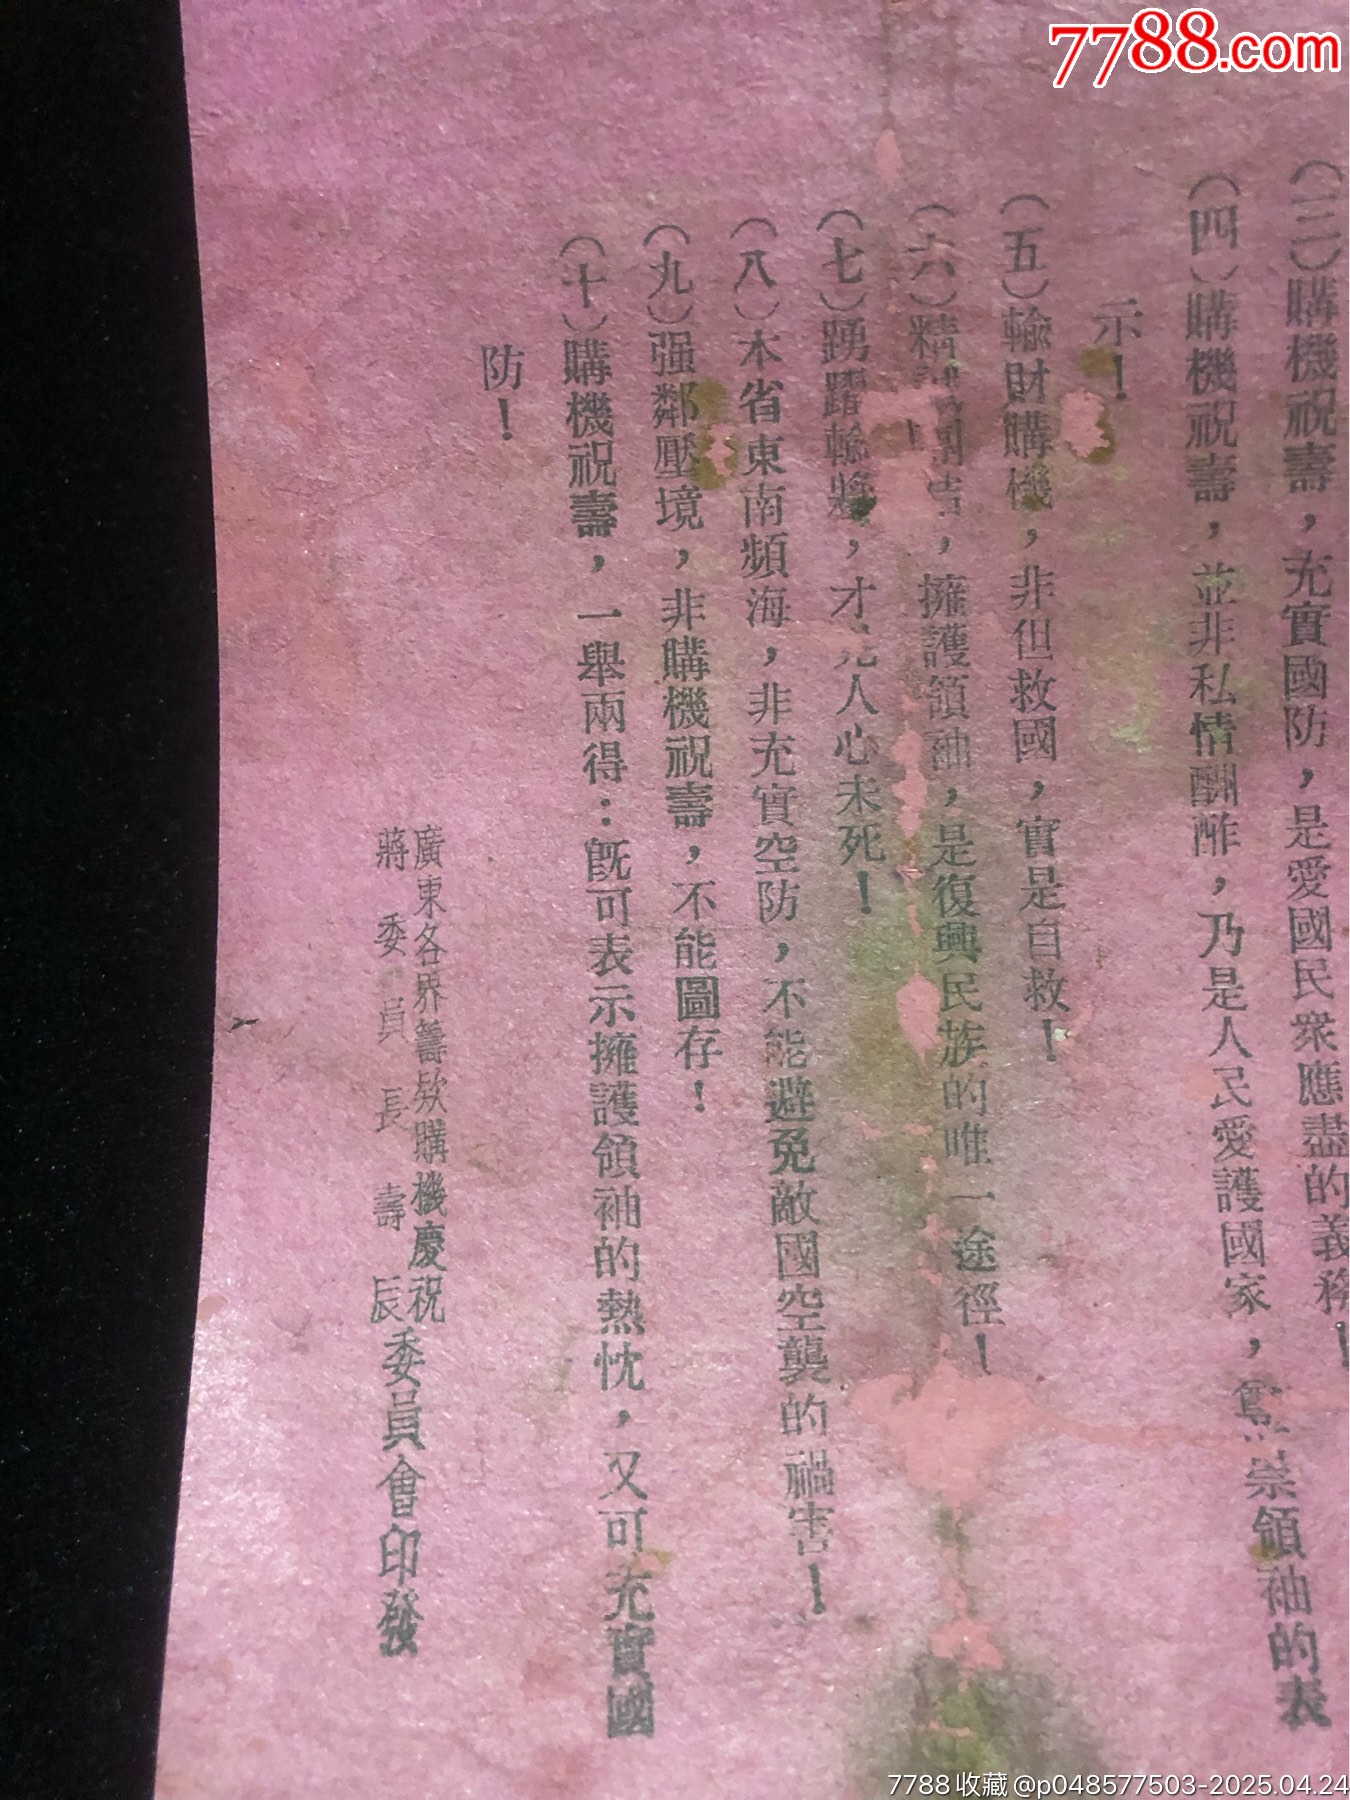 7788.com
（三）購機祝壽，充實國防，是愛國民衆應盡的義務！
（四）購機祝壽，並非私情酬酢，乃是人民愛護國家，崇領袖的表
示！
（五）輸財購機，非但救國，實是自救！
（六）精誠團結，擁護領袖，是復興民族的唯一途徑！
（七）踴躍輸將，才見人心未死！
（八）本省東南頻海，非充實空防，不能避免敵國空襲的禍害！
（九）强鄰壓境，非購機祝壽，不能圖存！
（十）購機祝壽，一舉兩得：旣可表示擁護領袖的熱忱，又可充實國
防！
廣東各界籌欵購機慶祝
蔣委員長壽辰
委員會印發
7788收藏@p048577503-2025.04.24